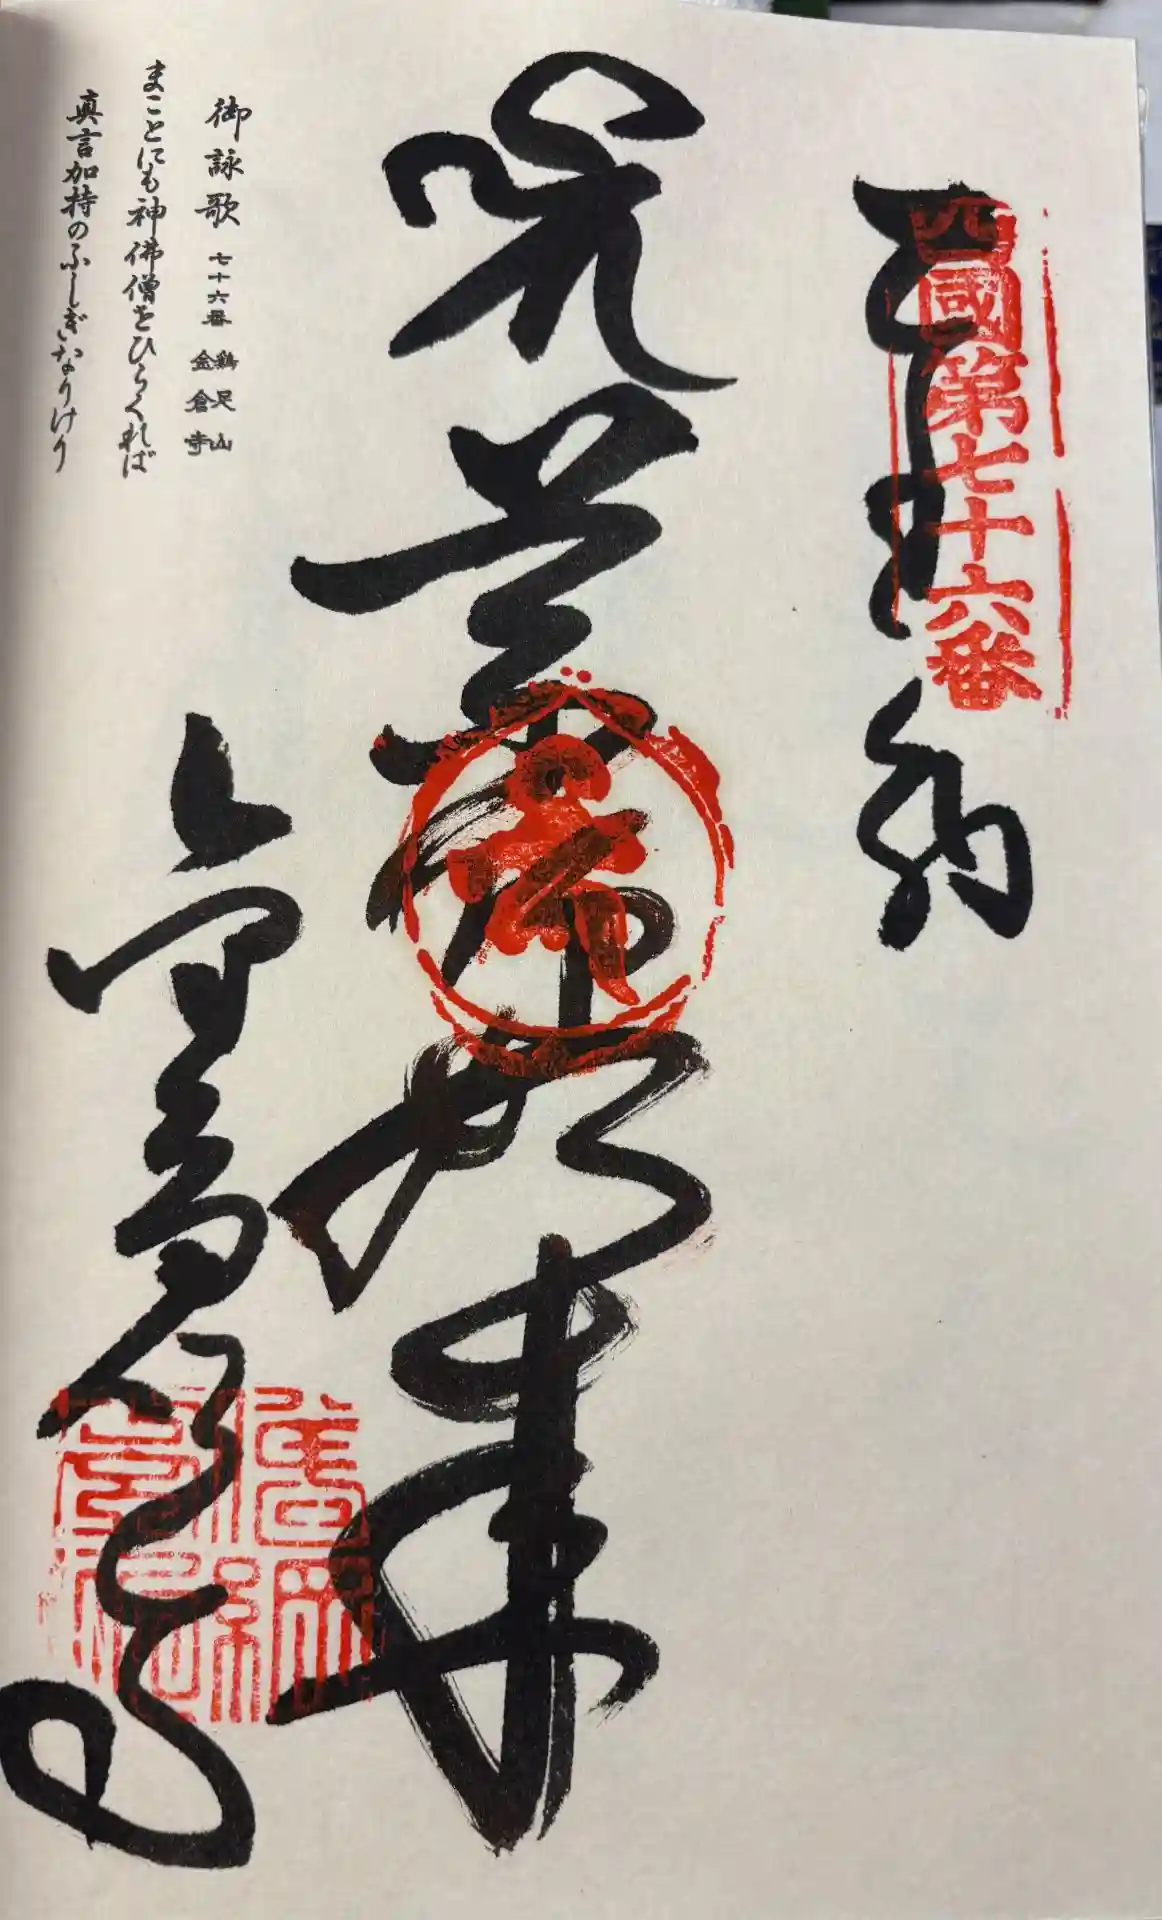 奉納
四國第七十六番
薬師如来
金倉寺
御詠歌 七十六番 鶏足山 金倉寺
まことにも神佛僧をひらくれば
真言加持のふしぎなりけり